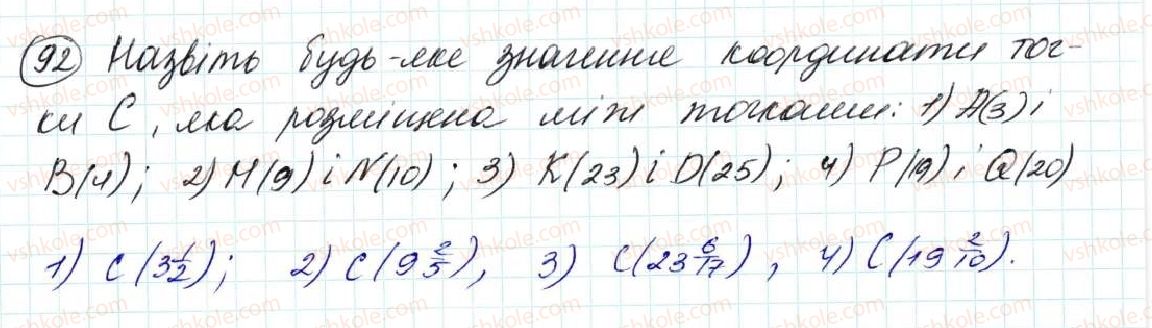 92 Назвіть будь-яке значення координати точ-
ки С, яка розміщена між точками: 1) А(3) і
В(4); 2) М(9) і N(10); 3) К(23) і D(25); 4) Р(19) і Q(20)
1) С(3 1/2); 2) С(9 2/5), 3) С(23 6/17), 4) С(19 2/10).